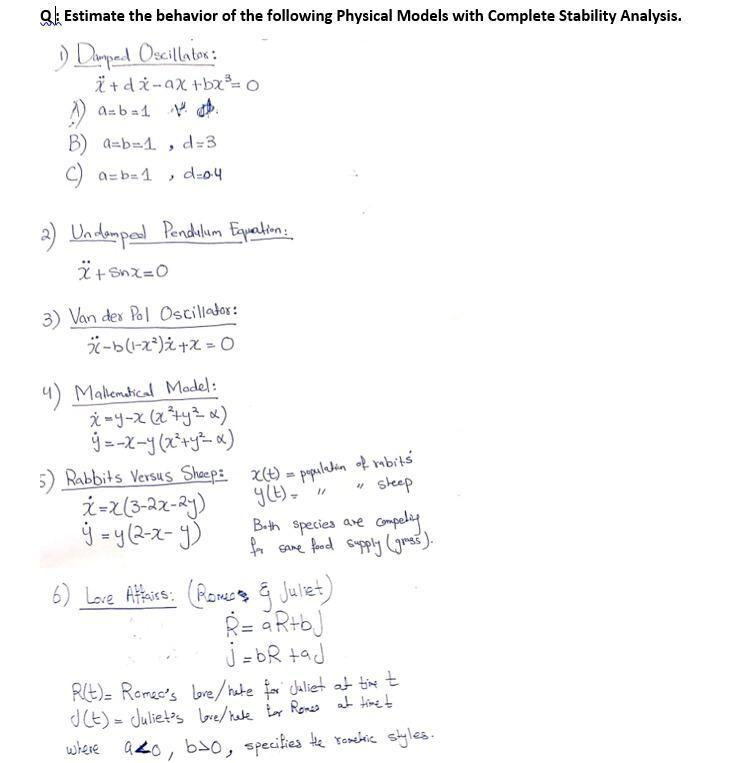 Q: Estimate the behavior of the following Physical Models with Complete Stability Analysis.
1) Damped Oscillator:
ẍ + dẋ - ax + bx³ = 0
A) a=b=1
B) a=b=1 , d=3
C) a=b=1 , d=0.4
2) Undamped Pendulum Equation:
ẍ + Sinx = 0
3) Van der Pol Oscillator:
ẍ - b(1-x²)ẋ + x = 0
4) Mathematical Model:
ẋ = y - x (x²+y²-α)
ẏ = -x - y (x²+y²-α)
5) Rabbits Versus Sheep: x(t) = population of rabits
ẋ = x(3-2x-2y) y(t) = " " sheep
ẏ = y(2-x-y) Both species are competing
for same food supply (grass).
6) Love Affairs: (Romeo & Juliet)
Ṙ = aR+bJ
J̇ = bR + aJ
R(t) = Romeo's love/hate for Juliet at time t
J(t) = Juliet's love/hate for Romeo at time t
where a<0, b>0, specifies the romantic styles.